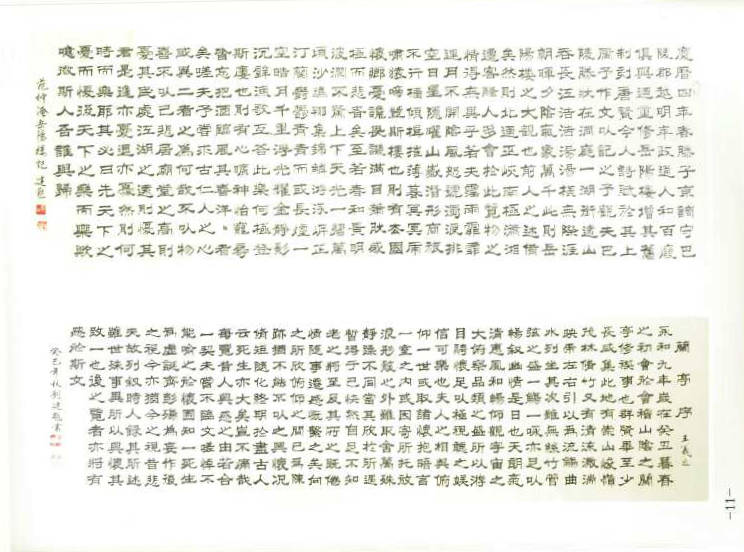 慶曆四年春滕子京謫守巴
陵郡越明年政通人和百廢
俱興乃重修岳陽樓增其舊
制刻唐賢今人詩賦於其上
屬予作文以記之予觀夫巴
陵勝狀在洞庭一湖銜遠山
吞長江浩浩湯湯橫無際涯
朝暉夕陰氣象萬千此則岳
陽樓之大觀也前人之述備
矣然則北通巫峽南極瀟湘
遷客騷人多會於此覽物之
情得無異乎若夫霪雨霏霏
連月不開陰風怒號濁浪排
空日星隱曜山嶽潛形商旅
不行檣傾楫摧薄暮冥冥虎
嘯猿啼登斯樓也則有去國
懷鄉憂讒畏譏滿目蕭然感
極而悲者矣至若春和景明
波瀾不驚上下天光一碧萬
頃沙鷗翔集錦鱗游泳岸芷
汀蘭郁郁青青而或長煙一
空皓月千里浮光耀金靜影
沉璧漁歌互答此樂何極登
斯樓也則有心曠神怡寵辱
皆忘把酒臨風其喜洋洋者
矣嗟夫予嘗求古仁人之心
或異二者之為何哉不以物
喜不以己悲居廟堂之高則
憂其民處江湖之遠則憂其
君是進亦憂退亦憂然則何
時而樂耶其必曰先天下之
憂而憂後天下之樂而樂歟
噫微斯人吾誰與歸
范仲淹岳陽樓記 建
蘭亭序 王羲之
永和九年歲在癸丑暮春
之初會於會稽山陰之蘭
亭修禊事也群賢畢至少
長咸集此地有崇山峻嶺
茂林修竹又有清流激湍
映帶左右引以為流觴曲
水列坐其次雖無絲竹管
弦之盛一觴一詠亦足以
暢敘幽情是日也天朗氣
清惠風和暢仰觀宇宙之
大俯察品類之盛所以游
目騁懷足以極視聽之娛
信可樂也夫人之相與俯
仰一世或取諸懷抱晤言
一室之內或因寄所托放
浪形骸之外雖取舍萬殊
靜躁不同當其欣於所遇
暫得于己快然自足不知
老之將至及其所之既倦
情隨事遷感慨繫之矣向
之所欣俯仰之間已為陳
跡猶不能不以之興懷況
修短隨化終期於盡古人
云死生亦大矣豈不痛哉
每覽昔人興感之由若合
一契未嘗不臨文嗟悼不
能喻之於懷固知一死生
為虛誕齊彭殤為妄作後
之視今亦猶今之視昔悲
夫故列敘時人錄其所述
雖世殊事異所以興懷其
致一也後之覽者亦將有
感於斯文
癸巳年秋劉建書
-11-